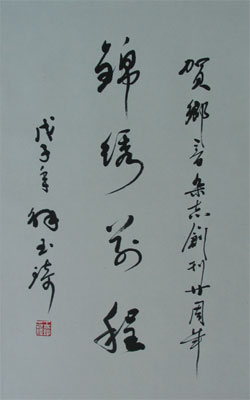 贺鄉音杂志創刊廿周年
錦绣前程
戊子年 徐玉琦